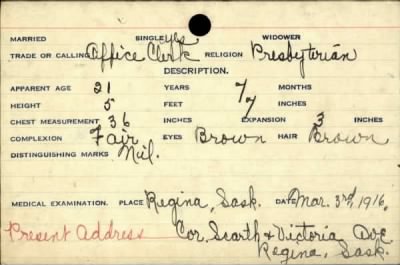 MARRIED SINGLE yes WIDOWER
TRADE OR CALLING Office Clerk RELIGION Presbyterian
DESCRIPTION.
APPARENT AGE 21 YEARS 7 MONTHS
HEIGHT 5 FEET 7 INCHES
CHEST MEASUREMENT 36 INCHES EXPANSION 3 INCHES
COMPLEXION Fair EYES Brown HAIR Brown
DISTINGUISHING MARKS Nil.
MEDICAL EXAMINATION. PLACE Regina, Sask. DATE Mar. 3rd, 1916.
Present Address Cor. Scarth & Victoria Ave
Regina, Sask.